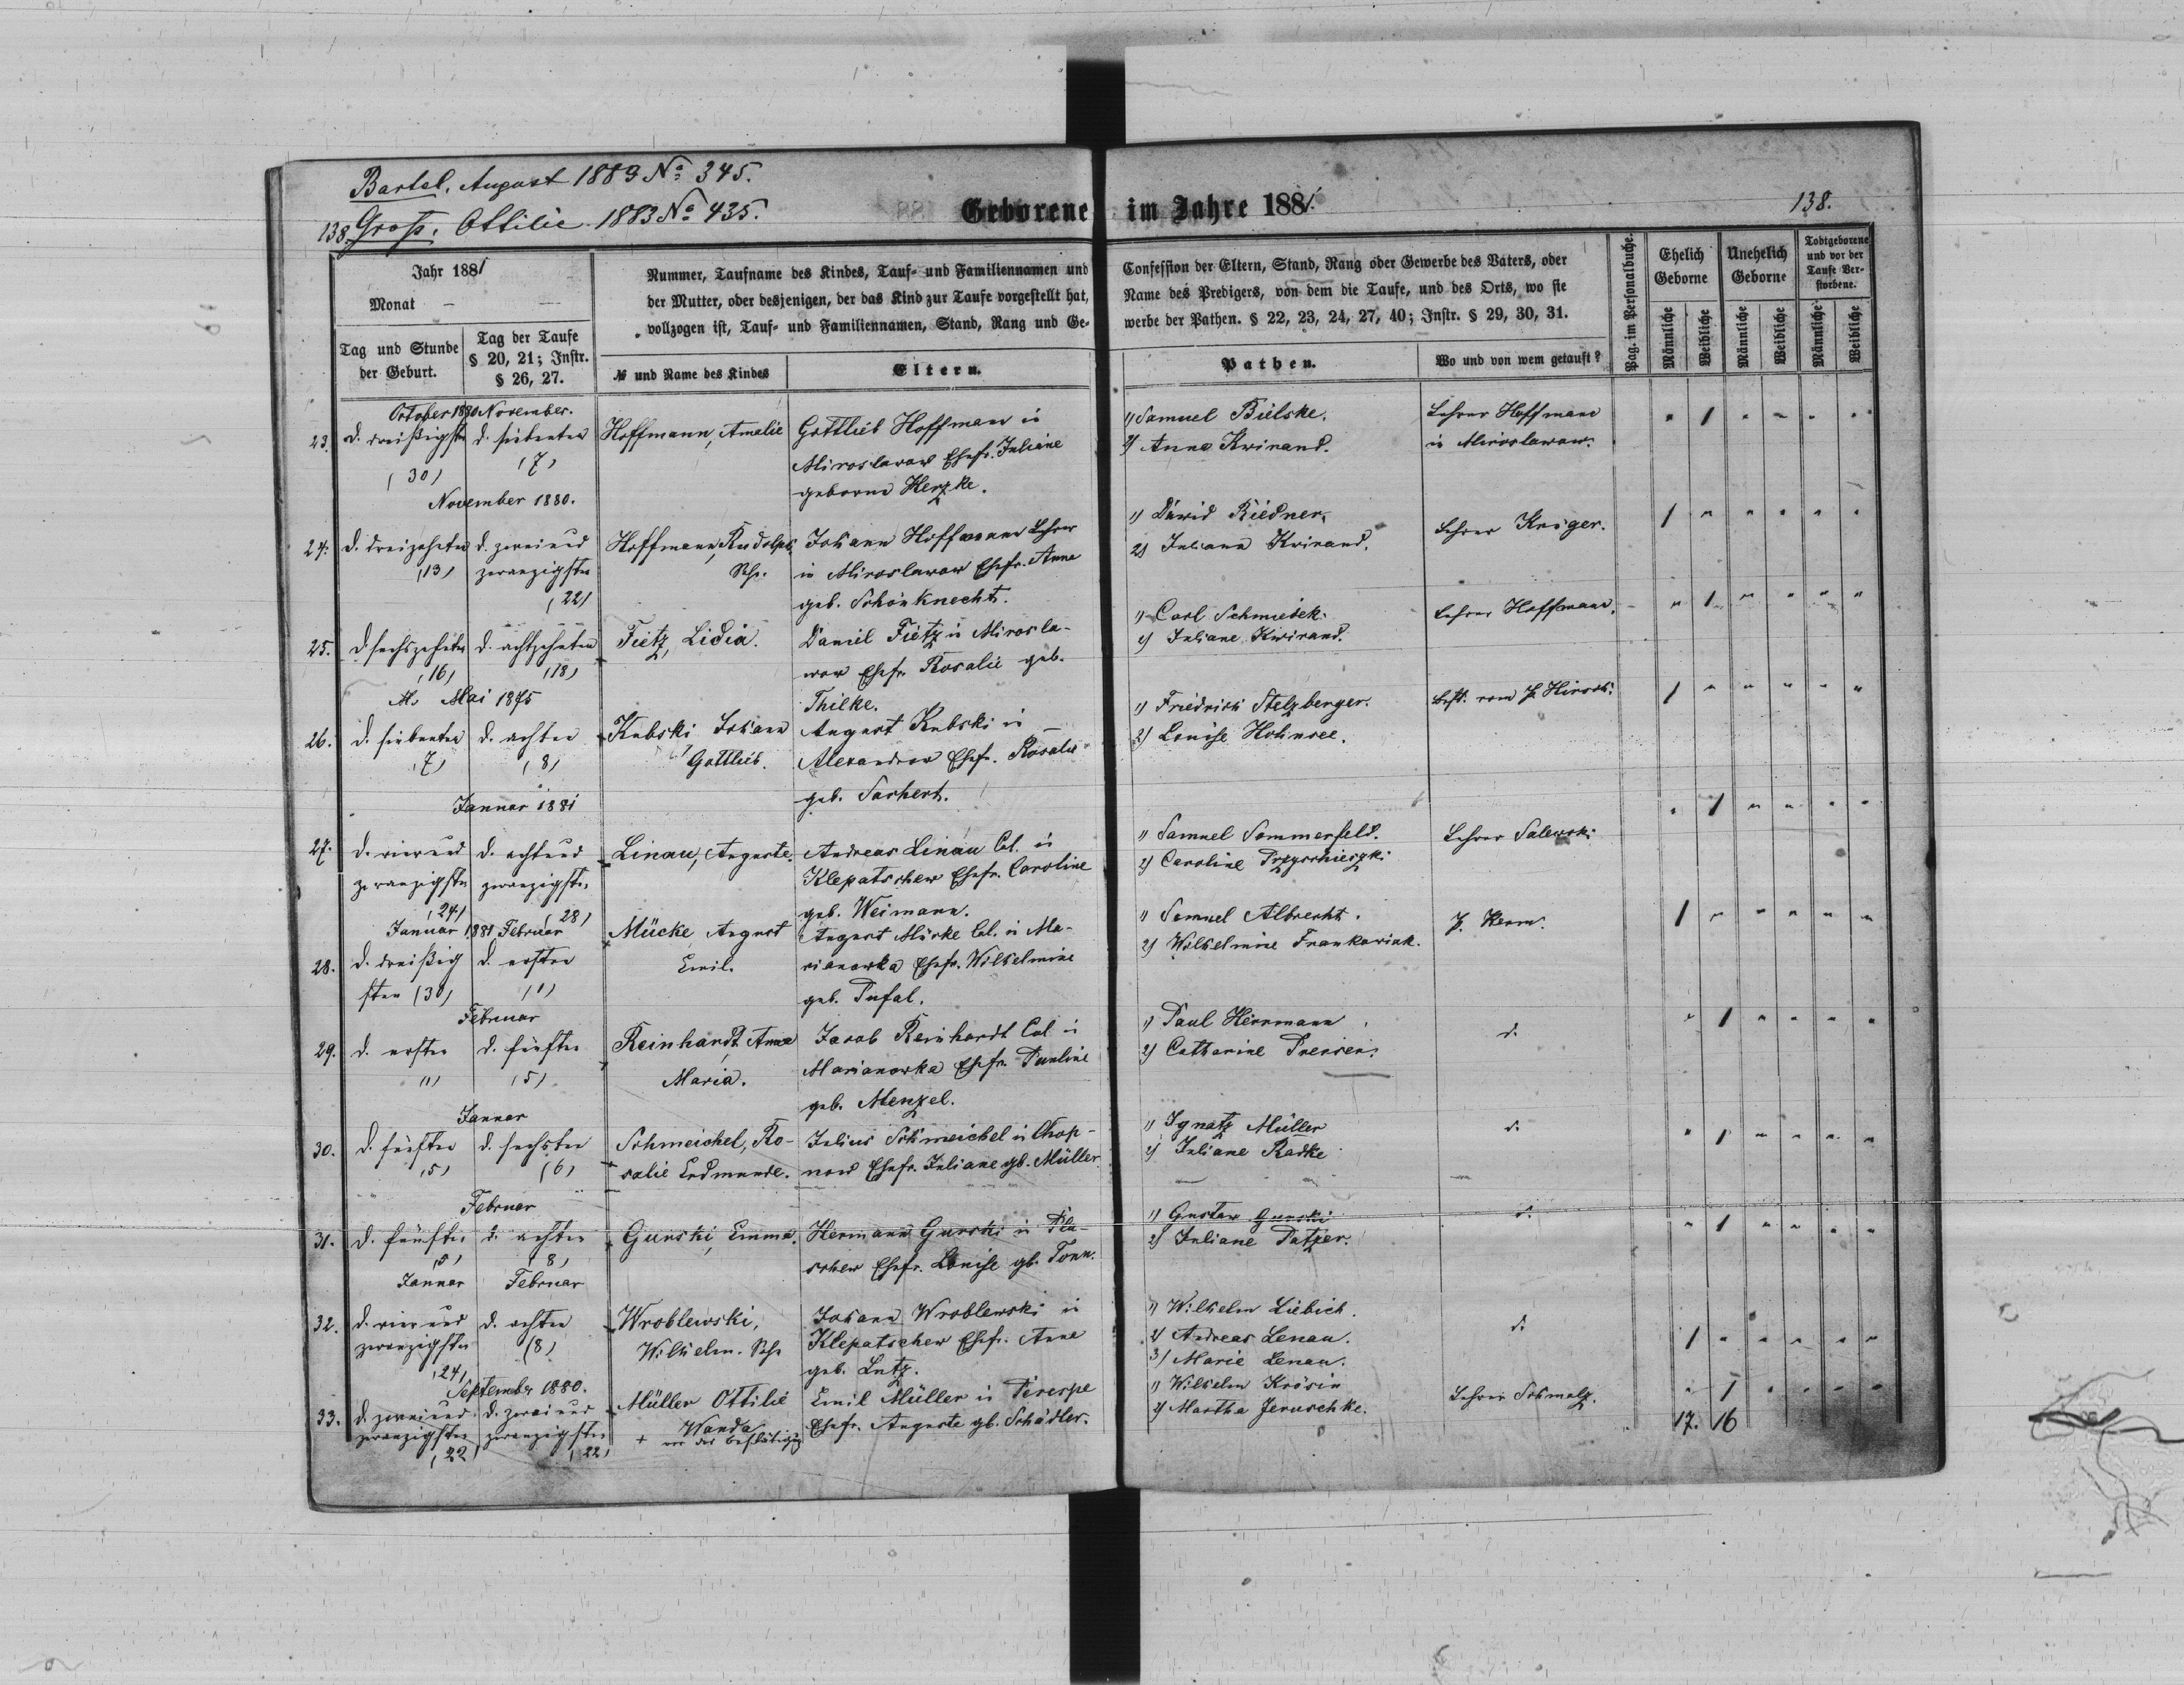 Bartel, August 1883 No 345.
138. Groß, Ottilie 1883 No 435.
Geborene im Jahre 1881.
138.
Jahr 1881
Monat
Tag und Stunde der Geburt.
Tag der Taufe § 20, 21; Instr. § 26, 27.
Nummer, Taufname des Kindes, Tauf- und Familiennamen und
der Mutter, oder desjenigen, der das Kind zur Taufe vorgestellt hat,
vollzogen ist, Tauf- und Familiennamen, Stand, Rang und Ge-
№ und Name des Kindes
Eltern.
Confession der Eltern, Stand, Rang oder Gewerbe des Vaters, oder
Name des Predigers, von dem die Taufe, und des Orts, wo sie
werbe der Pathen. § 22, 23, 24, 27, 40; Instr. § 29, 30, 31.
Pathen.
Wo und von wem getauft?
Pag. im Personalbuche.
Ehelich Geborne
Unehelich Geborne
Todtgeborene und vor der Taufe Verstorbene.
Männliche
Weibliche
Männliche
Weibliche
Männliche
Weibliche
October 1880 November.
23. d. dreißigsten d. siebenten Hoffmann, Amalie Gottlieb Hoffmann in
(30) (7) Miroslawow Ehefr. Juliane
geborne Herzke.
1) Samuel Bielske. Lehrer Hoffmann
2) Anna Kwirand. in Miroslawow.
November 1880.
24. d. dreizehnten d. zweiund Hoffmann, Rudolph Johann Hoffmann Lehrer
(13) zwanzigsten in Miroslawow Ehefr. Anna
(22) geb. Schönknecht.
1) Dawid Riedner. Lehrer Krüger.
2) Juliana Kwirand.
25. d. sechszehnten d. achtzehnten Fietz, Lidia. Daniel Fietz in Mirosla-
(16) (18) wow Ehefr. Rosalie geb.
Thilke.
1) Carl Schmiedek. Lehrer Hoffmann.
2) Juliane Kwirand.
Mai 1875
26. d. siebenten d. achten Kubski Johann August Kubski in
(7) (8) Gottlieb. Alexandrow Ehefr. Rosalie
geb. Sachert.
1) Friedrich Stelzberger. Best. vom P. Hirsch.
2) Louise Hohnsee.
Januar 1881
27. d. vierund d. achtund Linau, Auguste. Andreas Linau Col. in
zwanzigsten zwanzigsten Klepatschew Ehefr. Caroline
(24) (28) geb. Weimann.
1) Samuel Sommerfeld. Lehrer Salewski
2) Caroline
Januar 1881 Februar
28. d. dreißig d. ersten Mücke August August Mücke Col. in Ma-
sten (30) (1) Emil. rianowka Ehefr. Wilhelmine
geb. Pufal.
1) Samuel Albrecht.
2) Wilhelmine
Februar
29. d. ersten d. fünften Reinhardt, Anna Jacob Reinhardt Col in
(1) (5) Maria. Marianowka Ehefr. Pauline
geb. Menzel.
1) Paul Herrmann d.
2) Catharine
Januar
30. d. fünften d. sechsten Schmeichel, Ro- Julius Schmeichel in Chop-
(5) (6) salie Erdmunde. now Ehefr. Juliane gb. Müller.
1) Ignatz Müller d.
2) Juliane Radke
Februar
31. d. fünften d. achten Gurski, Emma. Hermann Gurski in
(5) (8) schew Ehefr. Louise gb. Tonn.
1) Gustav Gurski d.
2) Juliane Patzer.
Januar Februar
32. d. vierund d. achten Wroblewski, Johann Wroblewski in
zwanzigsten (8) Wilhelm. Klepatschew Ehefr. Anna
(24) geb. Lutz.
1) Wilhelm Liebich. d.
2) Andreas Lenau.
3) Marie Lenau.
September 1880.
33. d. zweiund d. zweiund Müller Ottilie Emil Müller in Perespe
zwanzigsten zwanzigsten Wanda Ehefr. Auguste gb. Schädler.
(22) (22) + vor der Bestätigung
1) Wilhelm Krösin Lehrer Schmalz.
2) Martha Jeruschke.
17. 16